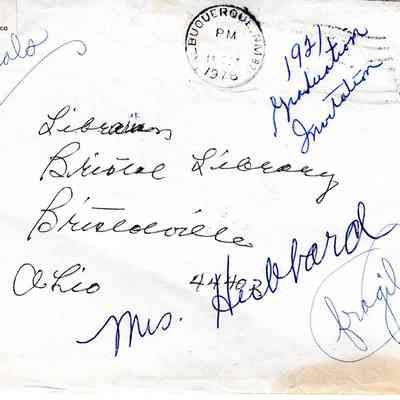 ALBUQUERQUE, NM
PM
1978
1921
Graduation
Invitation
Librarian
Bristol Library
Bristolville
Ohio 44402
Mrs. Hubbard
fragil